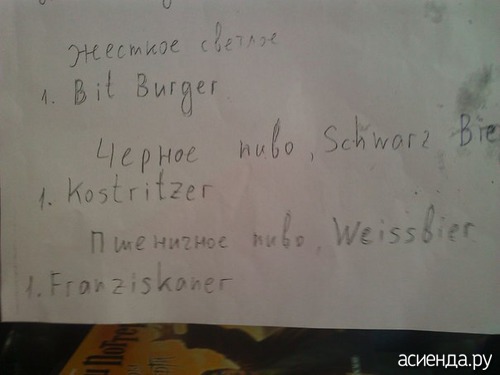 жесткое светлое
1. Bit Burger
Черное пиво, Schwarz Bie
1. Kostritzer
Пшеничное пиво, Weissbier
1. Franziskaner
асиенда.ру